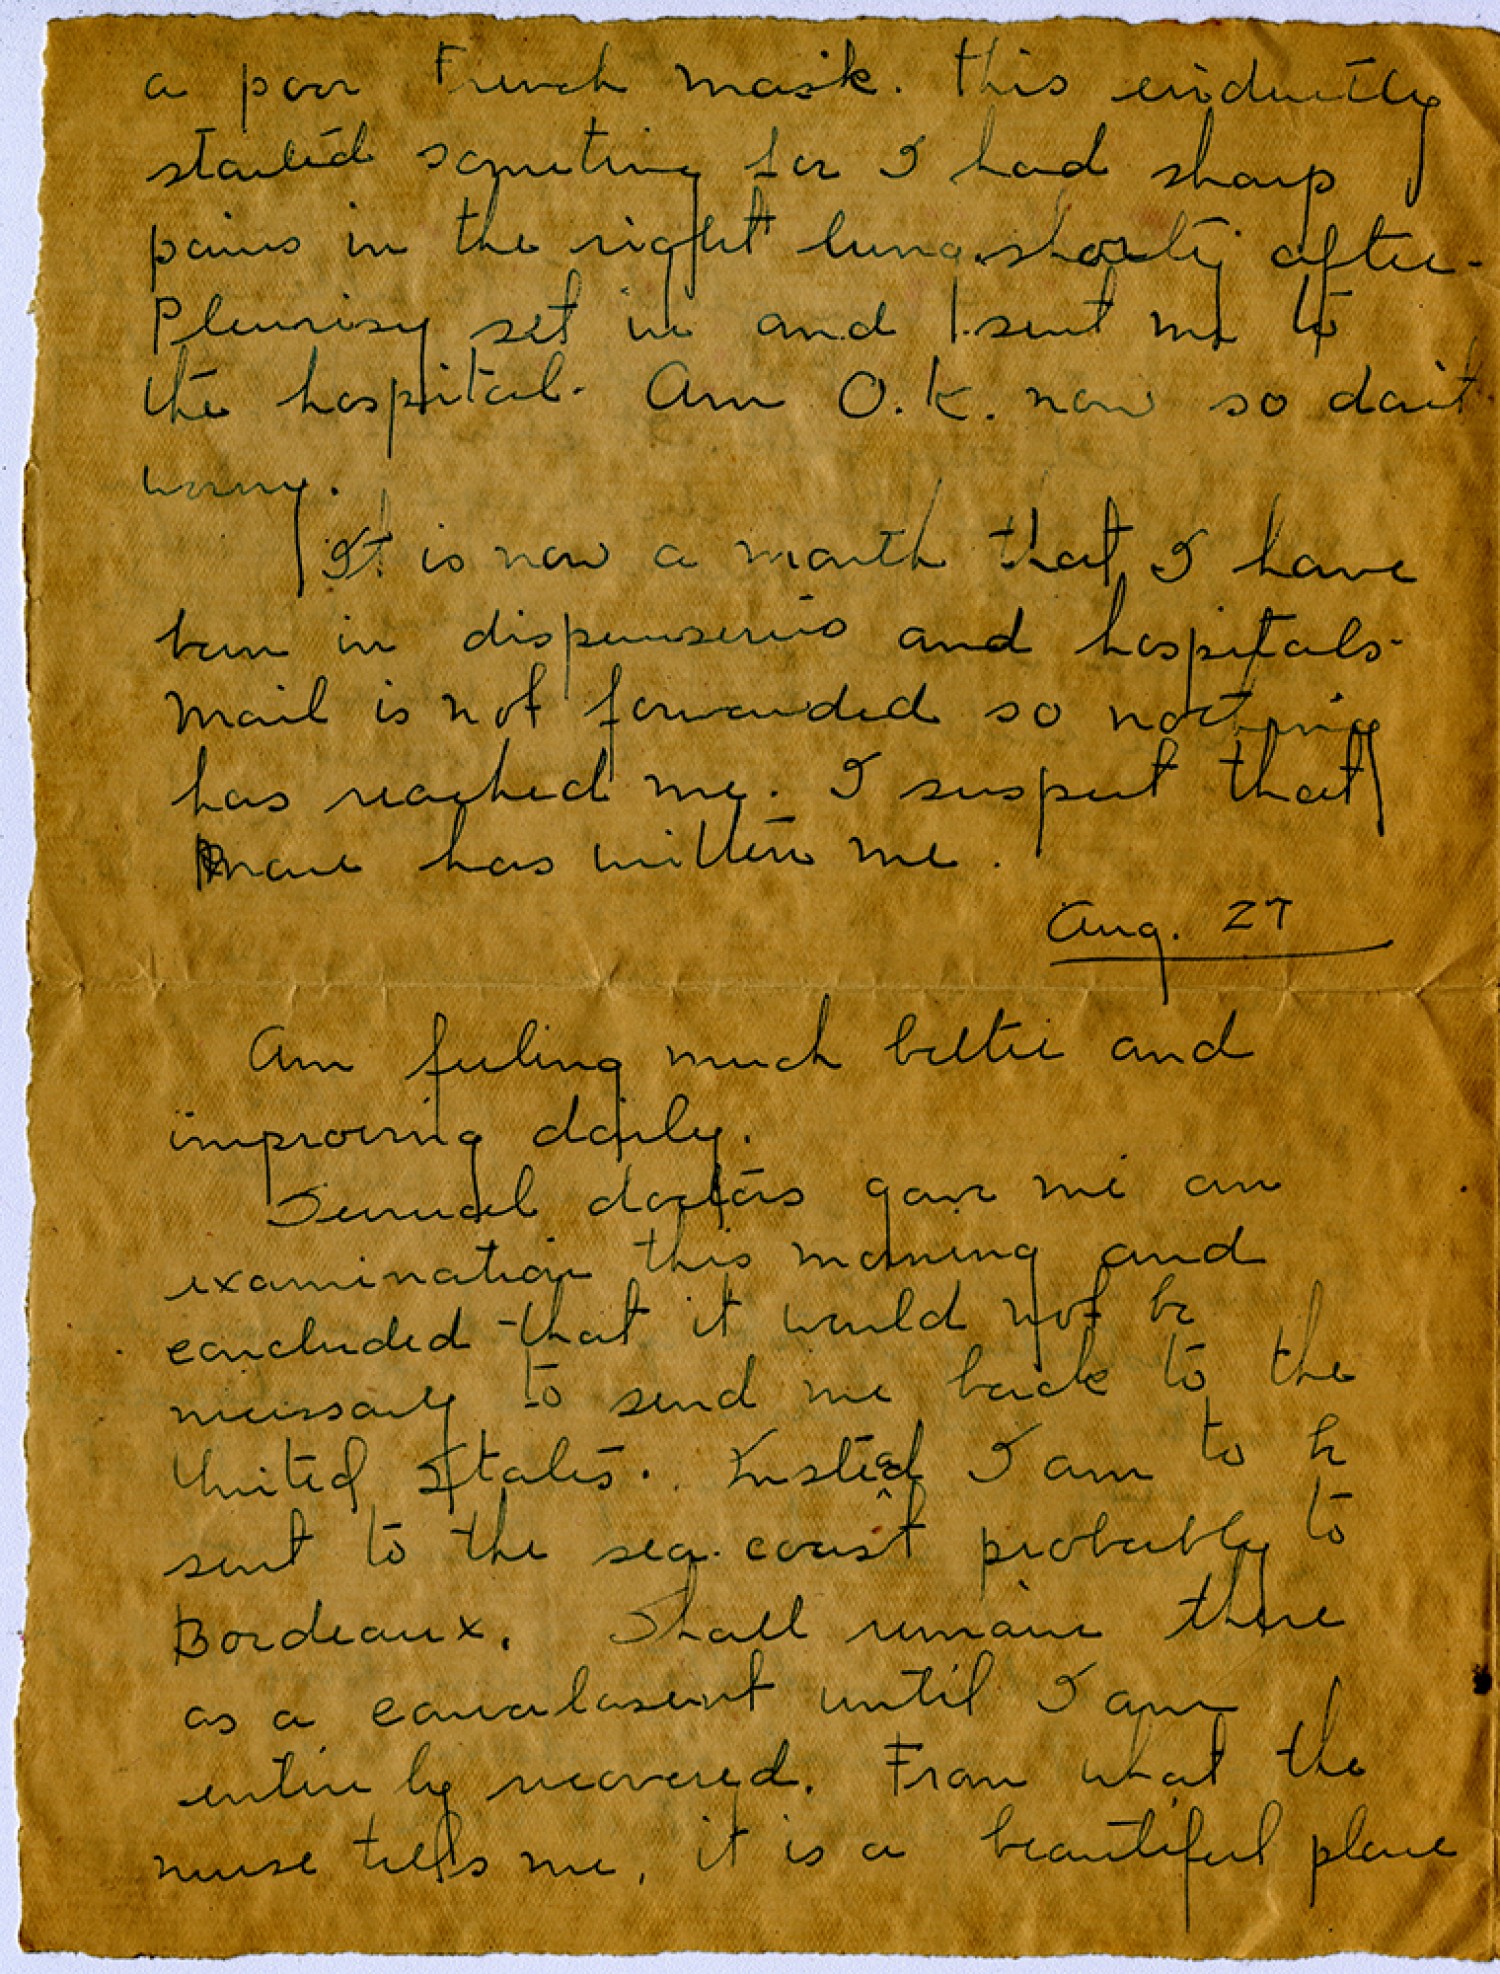 a poor French mask. This evidently
started someting for I had sharp
pains in the right lung shortly after.
Pleurisy set in and sent me to
the hospital. Am O.K. now so don't
worry.
It is now a month that I have
been in dispenseries and hospitals.
Mail is not forwarded so nothing
has reached me. I suspect that
has written me.
Aug. 27
Am feeling much better and
improving daily.
Several doctors gave me an
examination this morning and
concluded that it would not be
necessary to send me back to the
United States. Instead I am to be
sent to the sea coast probably to
Bordeaux. Shall remain there
as a convalasent until I am
entirely recovered. From what the
nurse tells me, it is a beautiful place